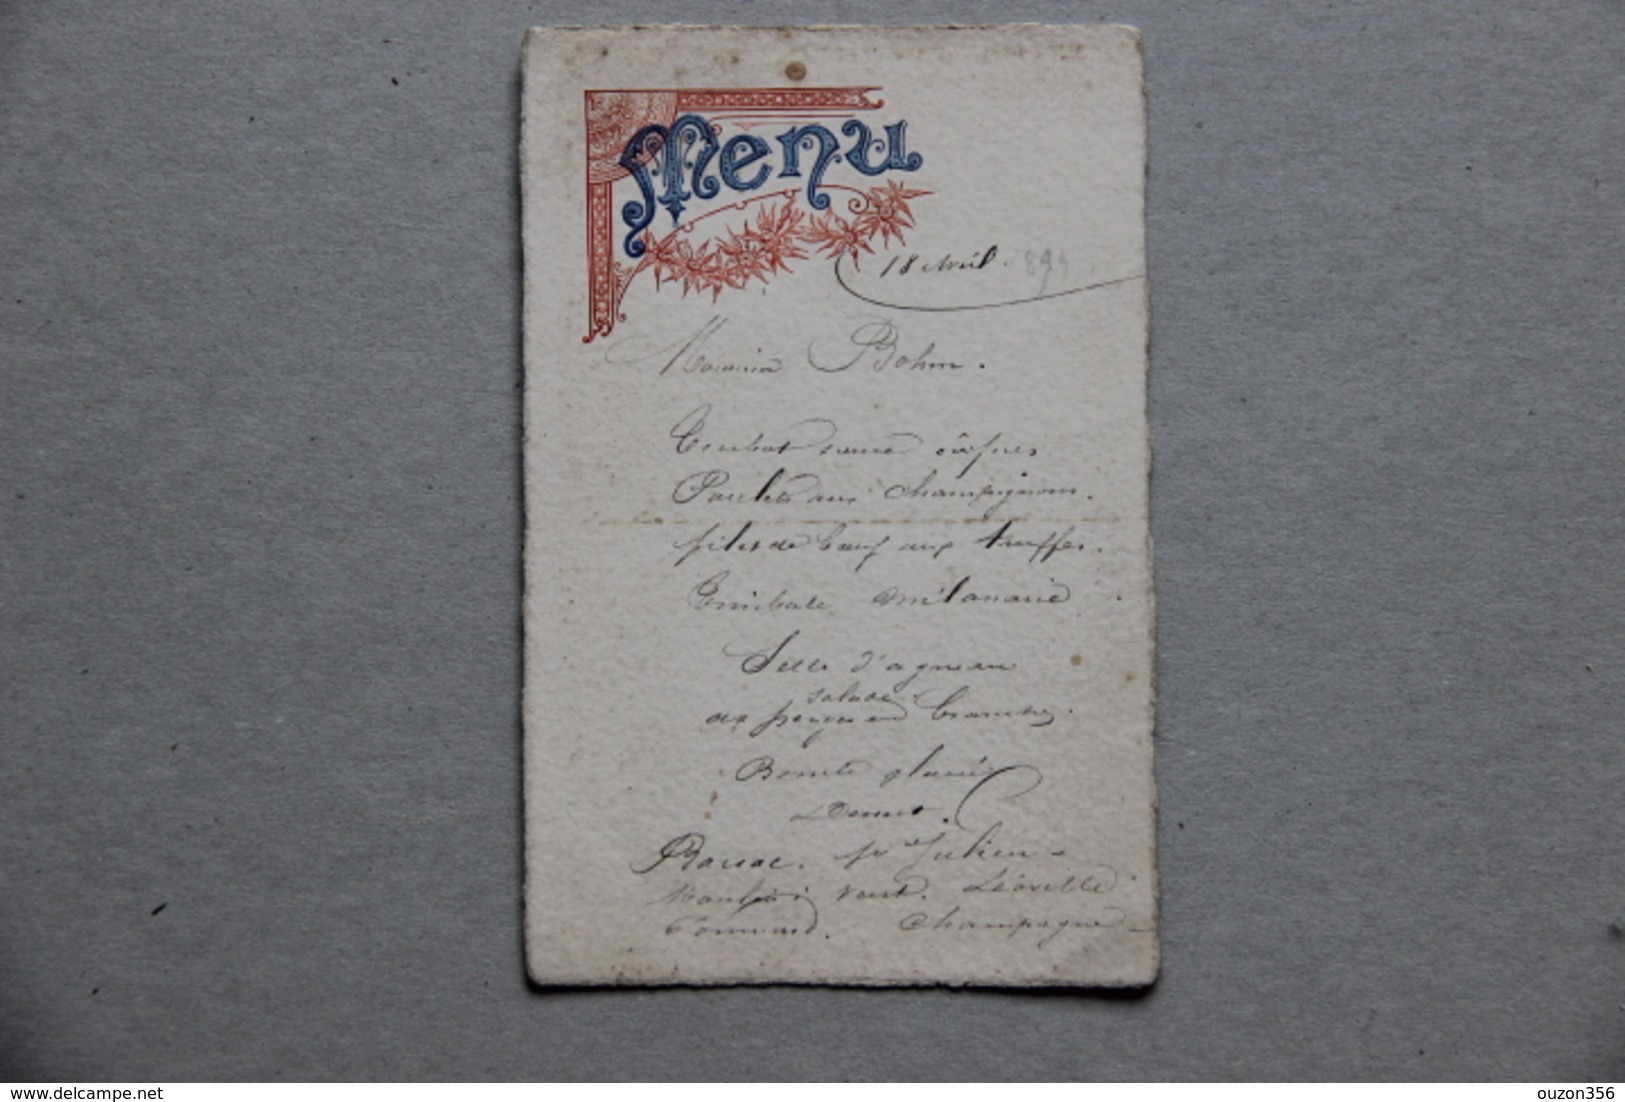 Menu
18 Avril. 89
Monsieur Bohm.
Turbot sauce câpres
Poulets aux champignons.
filet de bœuf aux truffes.
Timbale milanaise.
Selle d'agneau
salade.
asperges en branches.
Bombe glacée
Dessert.
Barsac. St Julien -
Moulin à vent. Léoville
Pommard. Champagne -
www.delcampe.net
ouzon356